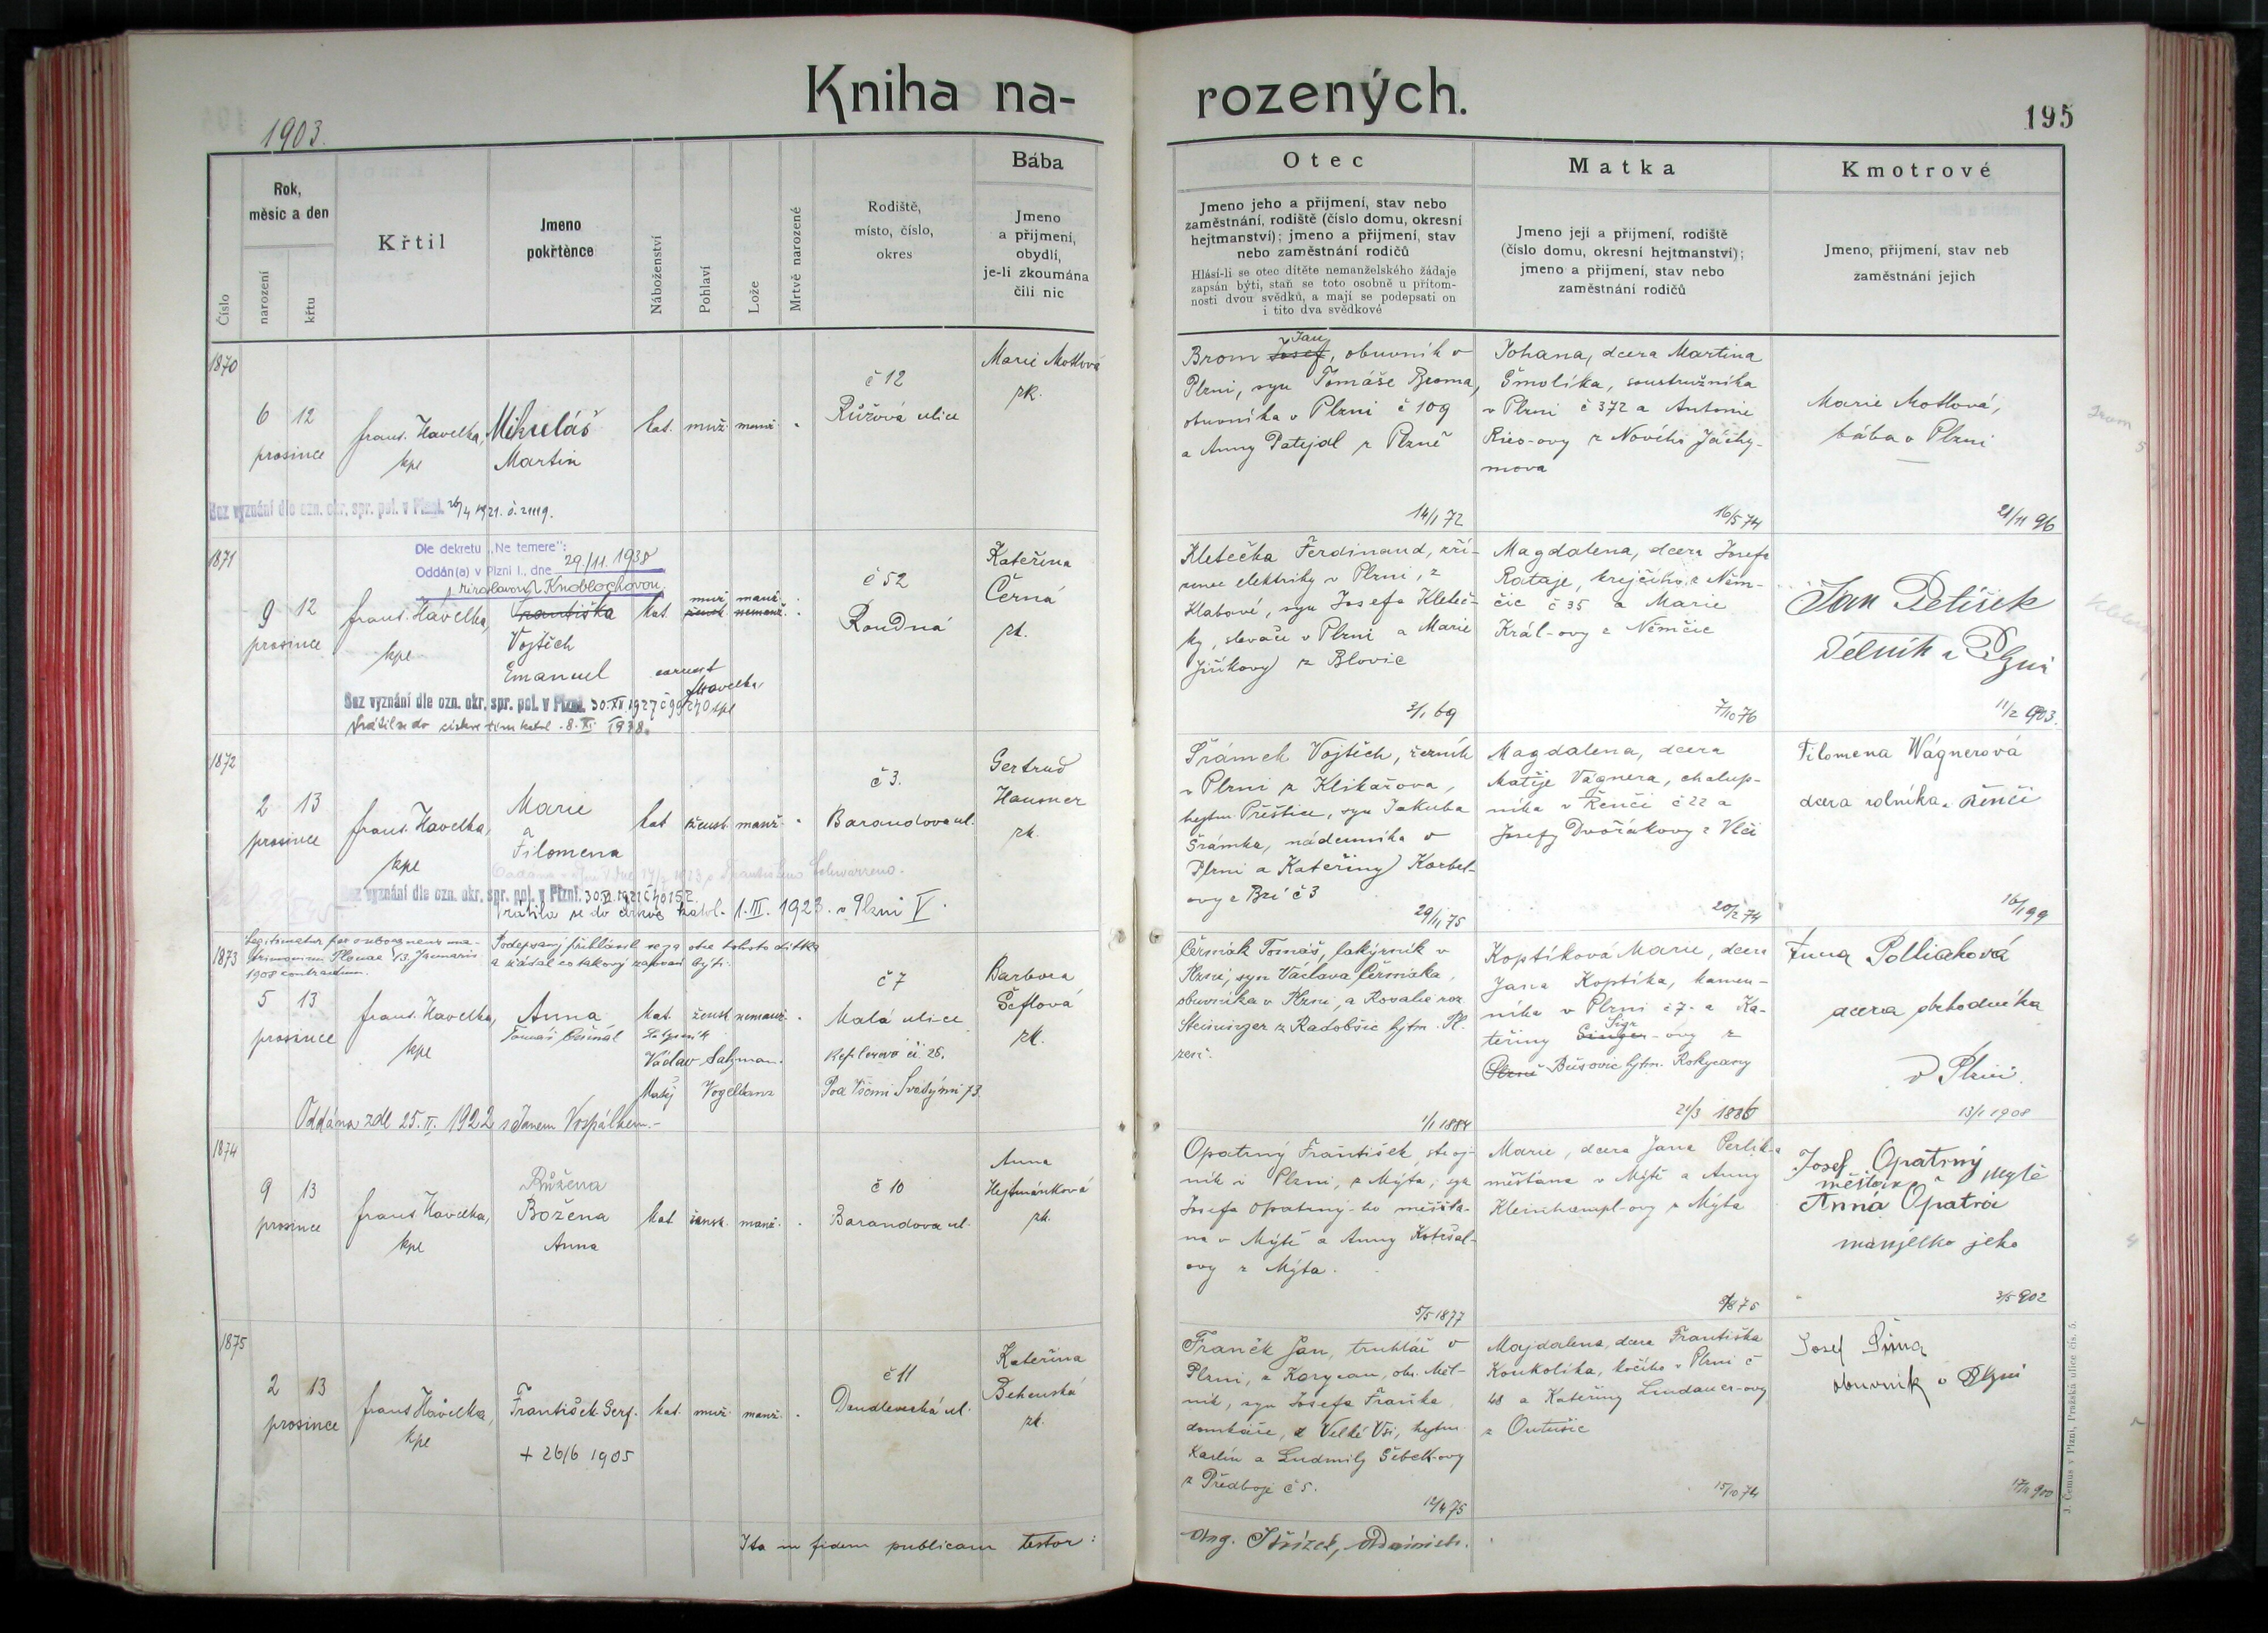 Kniha na-
rozených.
195
1903.
Číslo
Rok,
měsíc a den
narození
křtu
Křtil
Jmeno
pokřtěnce
Náboženství
Pohlaví
Lože
Mrtvě narozené
Rodiště,
místo, číslo,
okres
Bába
Jmeno
a přijmení,
obydlí,
je-li zkoumána
čili nic
Otec
Jmeno jeho a přijmení, stav nebo
zaměstnání, rodiště (číslo domu, okresní
hejtmanství); jmeno a přijmení, stav
nebo zaměstnání rodičů
Hlásí-li se otec dítěte nemanželského žádaje
zapsán býti, staň se toto osobně u přítom-
nosti dvou svědků, a mají se podepsati on
i tito dva svědkové
Matka
Jmeno její a přijmení, rodiště
(číslo domu, okresní hejtmanství);
jmeno a přijmení, stav nebo
zaměstnání rodičů
Kmotrové
Jmeno, přijmení, stav neb
zaměstnání jejich
1870
6 12
prosince
frant. Havelka,
kpl
Mikuláš
Martin
kat. muž. manž.
č 12
Růžová ulice
Marie Motlová
zk.
Bez vyznání dle ozn. okr. spr. pol. v Plzni. 26/4 1921. č. 21119.
Jan
Brom Josef, obuvník v
Plzni, syn Tomáše Broma,
obuvníka v Plzni č 109
a Anny Patejdl z Plzně
14/1 72
Johana, dcera Martina
Smolíka, soustružníka
v Plzni č 372 a Antonie
Ries-ovy z Nového Jáchy-
mova
16/5 74
Marie Motlová,
bába v Plzni
21/11 96
1871
Dle dekretu „Ne temere“:
Oddán(a) v Plzni I., dne 29./11. 1938
s Miroslavou Knoblochovou
9 12
prosince
frant. Havelka,
kpl
Františka
Vojtěch
Emanuel
kat.
muž manž.
žensk nemanž.
č 52
Roudná
Kateřina
Černá
zk.
Havelka,
kpl
Bez vyznání dle ozn. okr. spr. pol. v Plzni. 30.XI.1927
vrátil se do církve řím katol. 8. XI. 1938.
Kletečka Ferdinand, zří-
zenec elektriky v Plzni, z
Klabové, syn Josefa Kleteč-
ky, slevače v Plzni a Marie
Jiříkovy z Blovic
3/1 69
Magdalena, dcera Josefa
Rataje, krejčího z Něm-
čic č 35 a Marie
Král-ovy z Němčic
7/10 76
Jan Petíšek
dělník z Plzni
11/2 903.
1872
2 13
prosince
frant. Havelka,
kpl
Marie
a
Filomena
kat žensk. manž.
č 3.
Barandova ul.
Gertrud
Hausner
zk.
Bez vyznání dle ozn. okr. spr. pol. v Plzni.
Vrátila se do církve katol. 1. III. 1923. v Plzni V.
Šrámek Vojtěch, řezník
v Plzni z Klikařova,
hejtm. Přeštice, syn Jakuba
Šrámka, nádenníka v
Plzni a Kateřiny Korbel-
ovy z Brž č 3
29/11 75
Magdalena, dcera
Matěje Vágnera, chalup-
níka v Řenči č 22 a
Josefy Dvořákovy z Vlčí
20/2 74
Filomena Wágnerová
dcera rolníka z Řenčí
16/1 99
1873
Legitimatur per subsequens ma-
trimonium Plznae 13. Januarii
1908 contractum.
Podepsaný přihlásil se za otce tohoto dítka
a žádal co takový zapsán býti.
5 13
prosince
frant. Havelka,
kpl
Anna
Tomáš Čermák
kat. žensk nemanž.
Václav Salzman.
Matěj Vogeltanz
č 7
Malá ulice
Keplerova čí. 26.
Pod Všemi Svatými 73
Barbora
Šeflová
zk.
Oddána zde 25. II. 1922 s Janem Vospálkem.-
Čermák Tomáš, lakýrník v
Plzni, syn Václava Čermáka,
obuvníka v Plzni, a Rosalie roz
Steininger z Radobšic hejtm. Pl-
zeň.
1/1 1884
Koptíková Marie, dcera
Jana Koptíka, kamen-
níka v Plzni č 7. a Ka-
teřiny Singer-ovy z
Plzně Bušovic hejtm. Rokycany
21/3 1886
Anna Polliaková
dcera obchodníka
v Plzni.
13/1 1908
1874
9 13
prosince
frant. Havelka,
kpl
Růžena
Božena
Anna
kat žensk. manž.
č 10
Barandova ul.
Anna
Hejtmánková
zk.
Opatrný František, stroj-
ník v Plzni, z Mýta, syn
Josefa Opatrný-ho měšťa-
na v Mýtě a Anny
ovy z Mýta.
5/5 1877
Marie, dcera Jana Perlíka
měšťana v Mýtě a Anny
Kleinhampl-ovy z Mýta
Josef Opatrný
měšťan Mýtě
Anna Opatrná
manželka jeho
3/5 902
1875
2 13
prosince
frant Havelka,
kpl
František Serf.
+ 26/6 1905
kat. muž. manž.
č 11
Doudlevská ul.
Kateřina
Behenská
zk.
Franěk Jan, truhlář v
Plzni, z Korycan, okr. Měl-
ník, syn Josefa Fraňka
domkáře, z Velké Vsi, hejtm
Karlín a Ludmily Sebek-ovy
z Předboje č 5.
12/4 75
Majdalena, dcera Františka
Koukolíka, kočího v Plzni č
48 a Kateřiny Lindauer-ovy
z Outušic
15/10 74
Josef Šíma
obuvník v Plzni
Ita in fidem publicam testor:
J. Čemus v Plzni, Pražská ulice čís. 5.